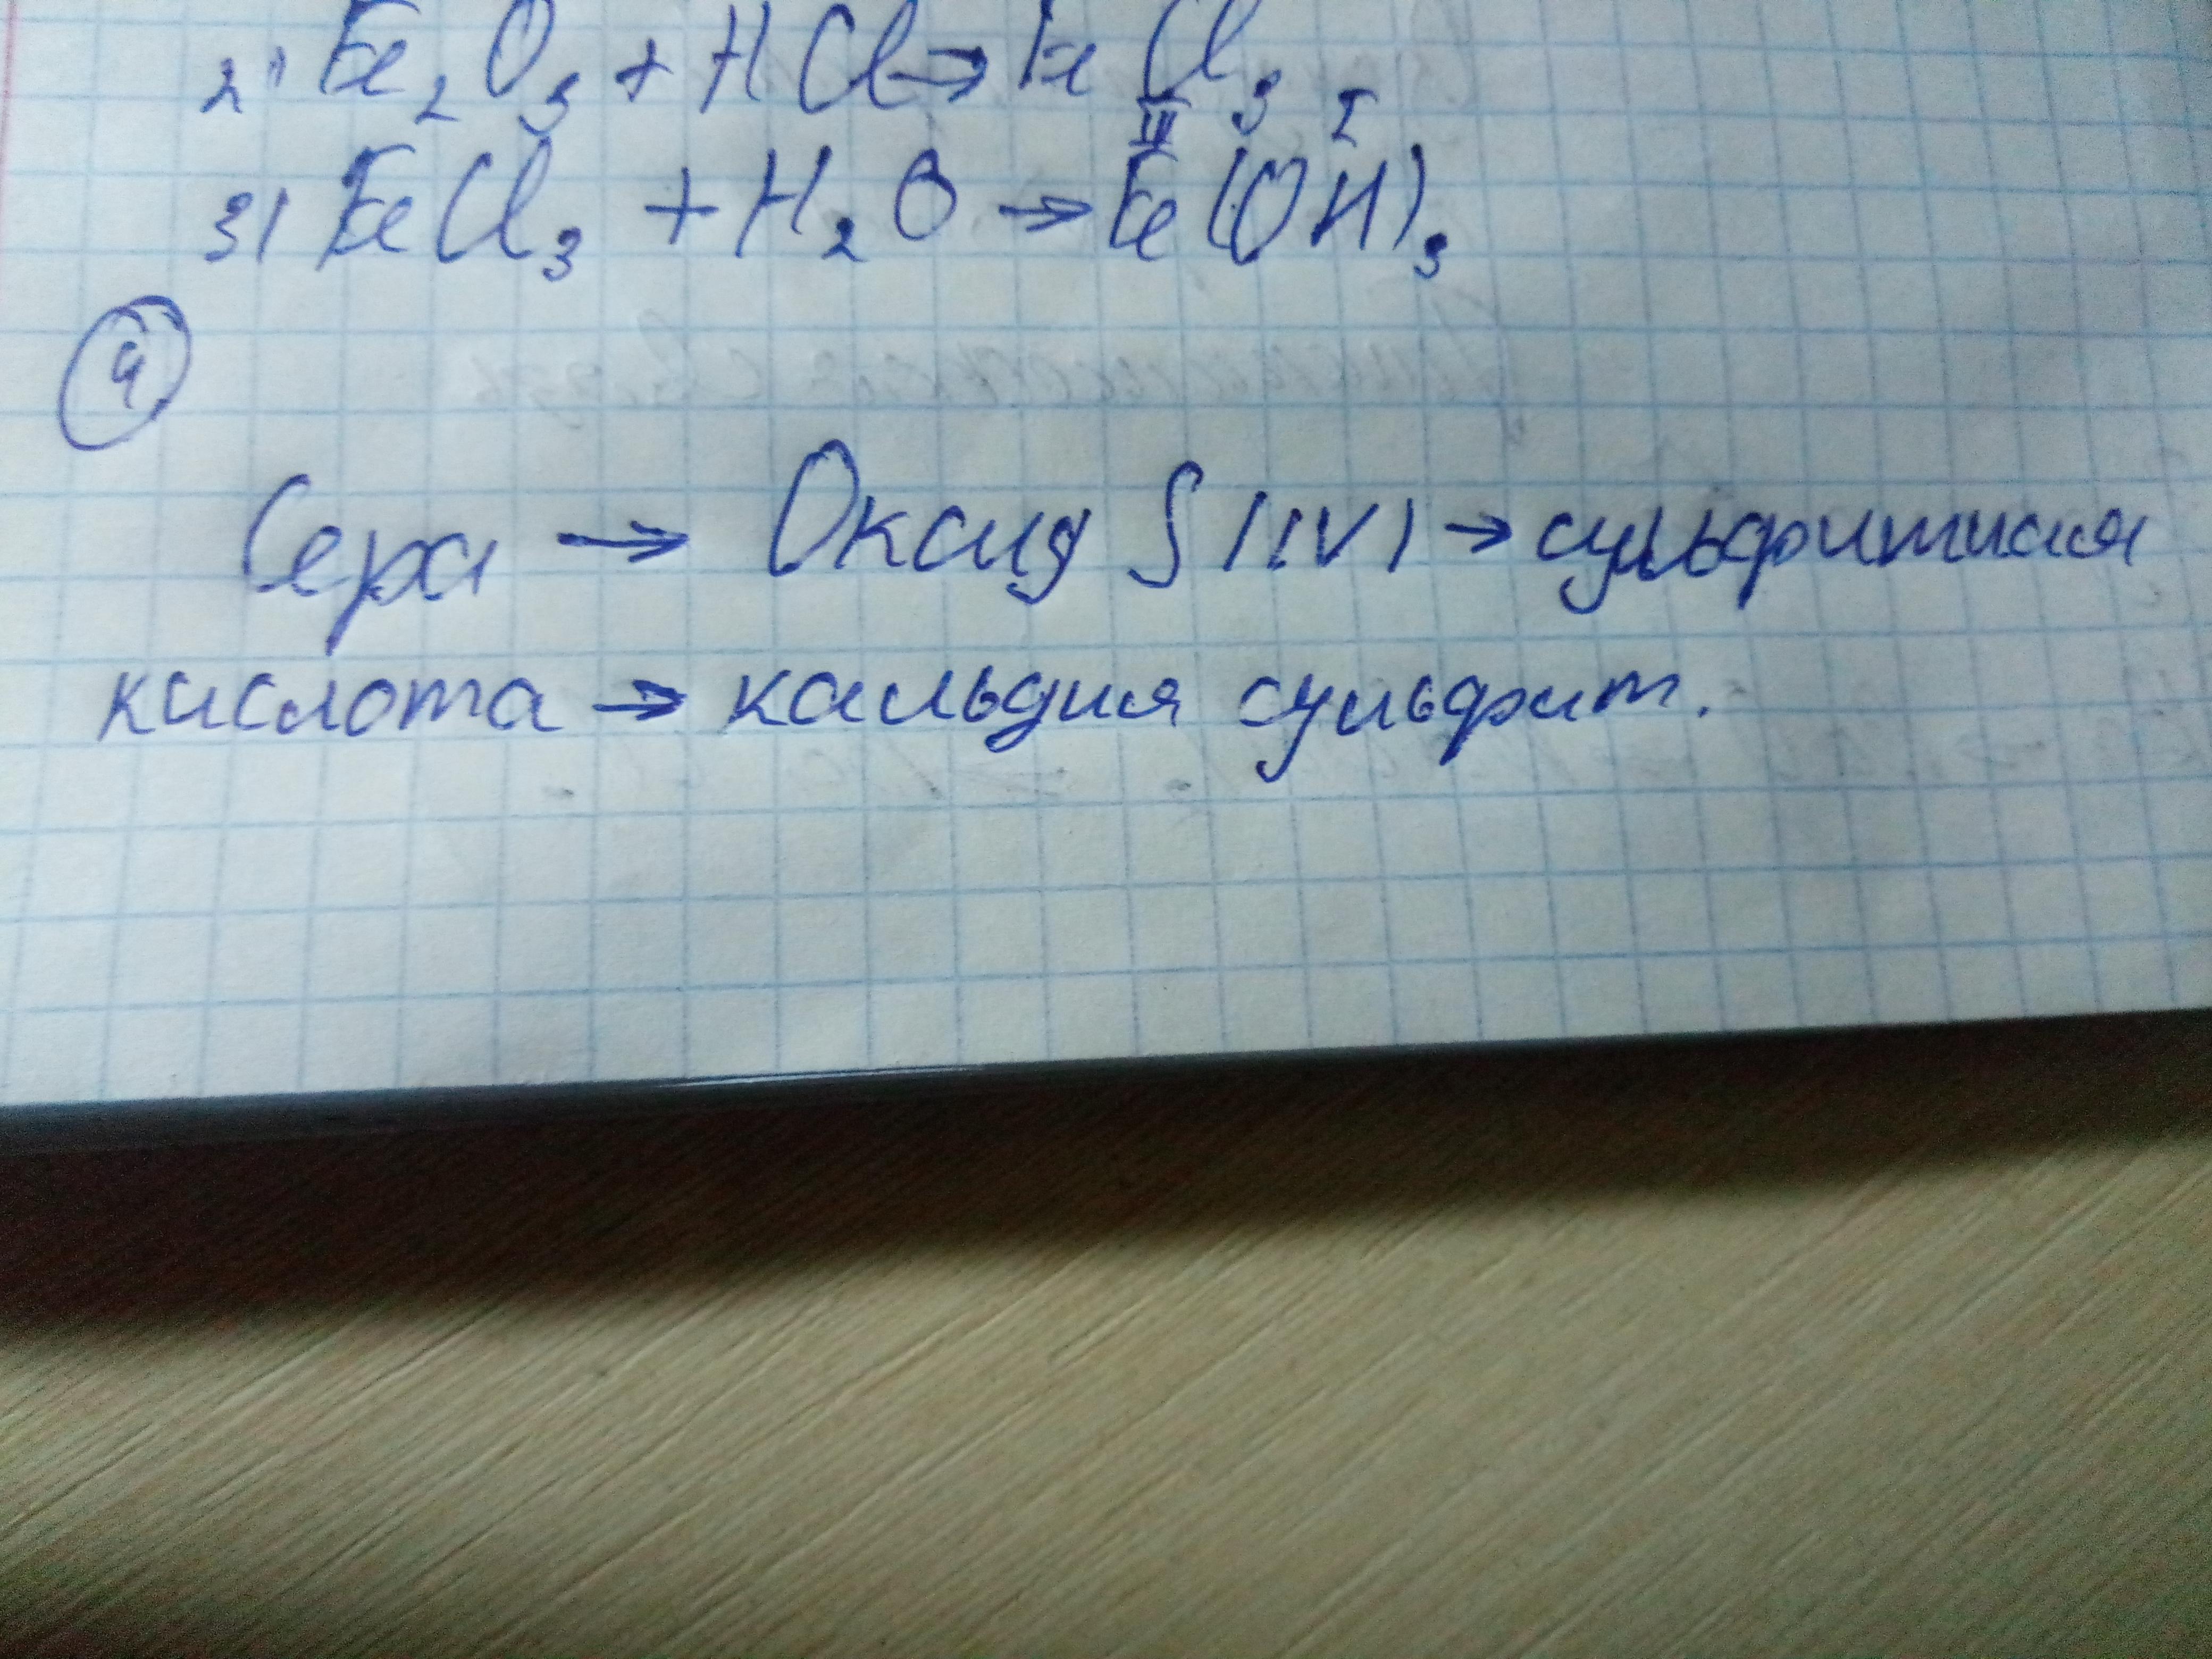 2) Fe₂O₃ + HCl → FeCl₃
III I
3) FeCl₃ + H₂O → Fe(OH)₃
4
Сера → Оксид S (IV) → сульфитная
кислота → кальция сульфит.